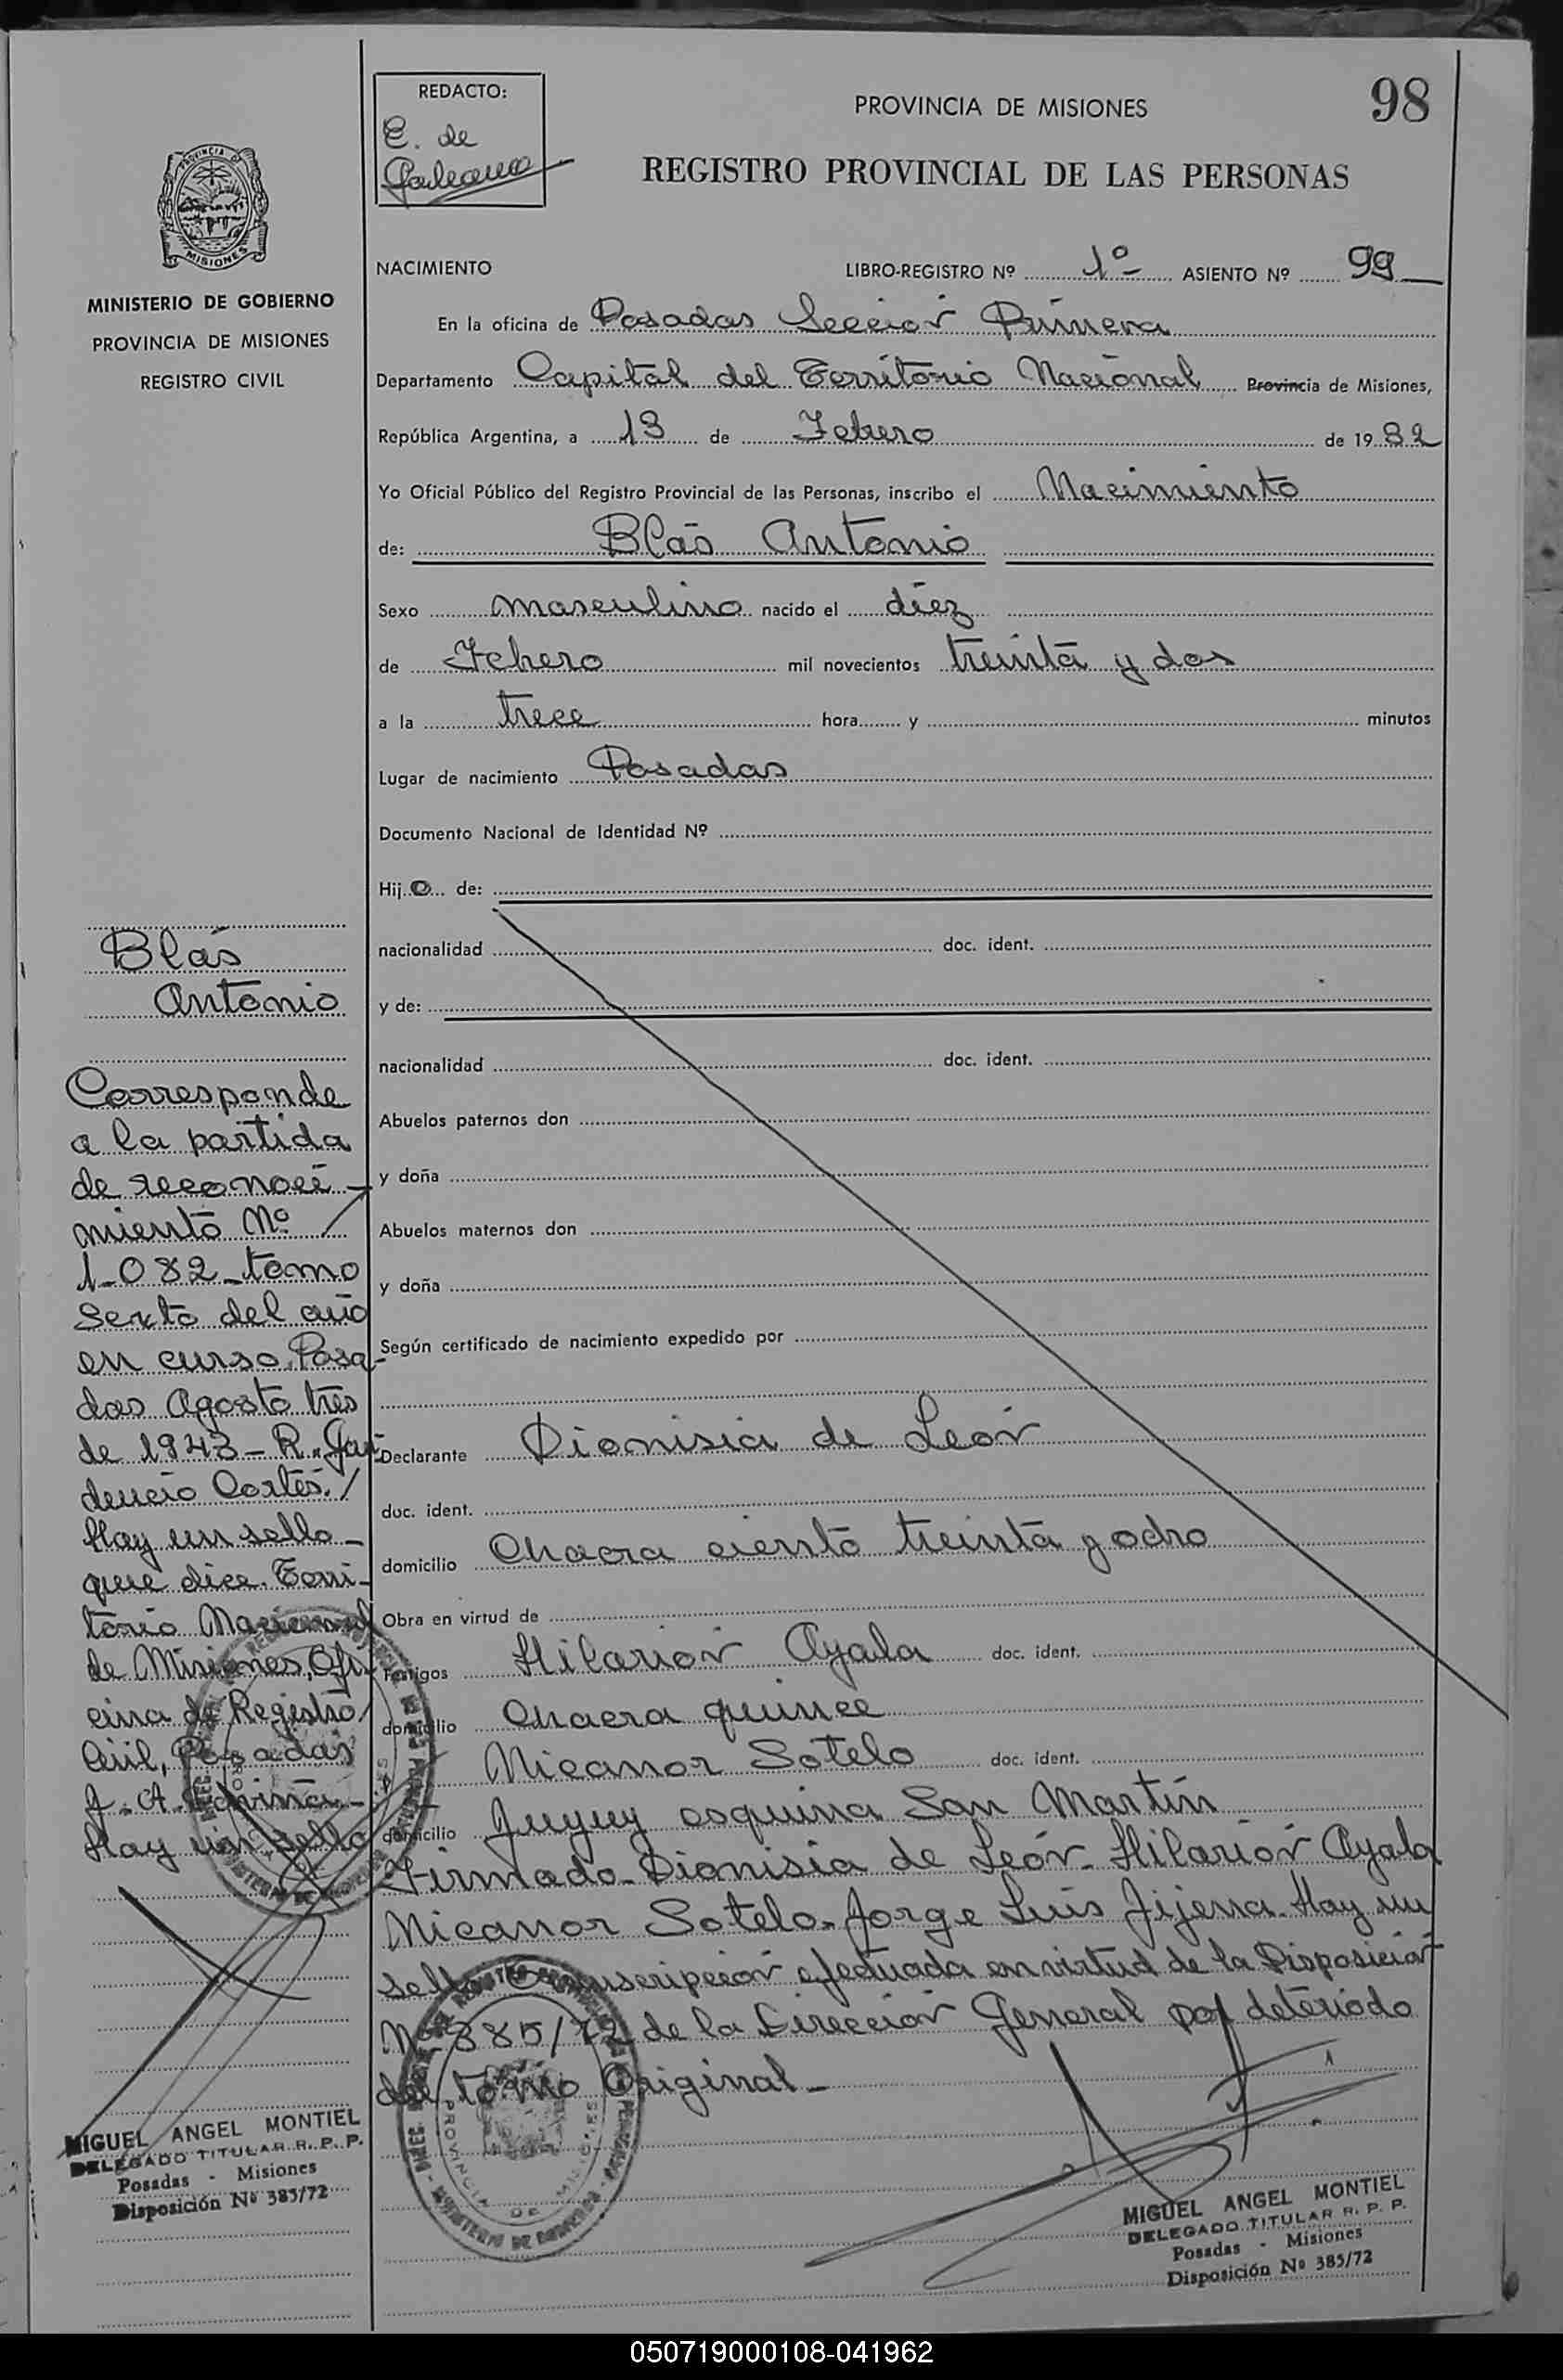 98
REDACTO:
E. de
Galeano
PROVINCIA DE MISIONES
REGISTRO PROVINCIAL DE LAS PERSONAS
MISIONES
MINISTERIO DE GOBIERNO
PROVINCIA DE MISIONES
REGISTRO CIVIL
NACIMIENTO LIBRO-REGISTRO Nº 1º ASIENTO Nº 99
En la oficina de Posadas Sección Primera
Departamento Capital del Territorio Nacional Provincia de Misiones,
República Argentina, a 13 de Febrero de 1932
Yo Oficial Público del Registro Provincial de las Personas, inscribo el Nacimiento
de: Blás Antonio
Sexo masculino nacido el diez
de Febrero mil novecientos treinta y dos
a la trece hora y minutos
Lugar de nacimiento Posadas
Documento Nacional de Identidad Nº
Hij o de:
nacionalidad doc. ident.
y de:
nacionalidad doc. ident.
Abuelos paternos don
y doña
Abuelos maternos don
y doña
Según certificado de nacimiento expedido por
Declarante Dionisia de León
doc. ident.
domicilio Chacra ciento treinta y ocho
Obra en virtud de
Testigos Hilarión Ayala doc. ident.
domicilio Chacra quince
Nicanor Sotelo doc. ident.
domicilio Jujuy esquina San Martín
Firmado Dionisia de León. Hilarión Ayala
Nicanor Sotelo. Jorge Luis Jijena. Hay un
sello Transcripción efectuada en virtud de la Disposición
Nº 385/72 de la Dirección General por deteriodo
del tomo Original
Blás
Antonio
Corresponde
a la partida
de reconoci
miento Nº
1.082 tomo
Sexto del año
en curso. Posa
das Agosto tres
de 1943 - R. Gau
dencio Cortés.
Hay un sello
que dice. Terri-
torio Nacional
de Misiones, Ofi
cina de Registro
Civil, Posadas
Hay un sello
MIGUEL ANGEL MONTIEL
DELEGADO TITULAR R. P. P.
Posadas - Misiones
Disposición Nº 385/72
PROVINCIA DE MISIONES
MIGUEL ANGEL MONTIEL
DELEGADO TITULAR R. P. P.
Posadas - Misiones
Disposición Nº 385/72
050719000108-041962